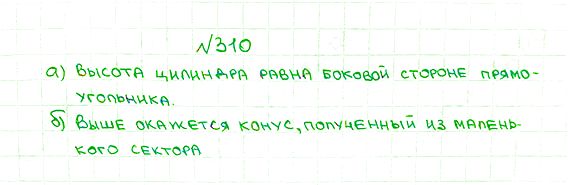 №310
а) Высота цилиндра равна боковой стороне прямо-
угольника.
б) Выше окажется конус, полученный из малень-
кого сектора